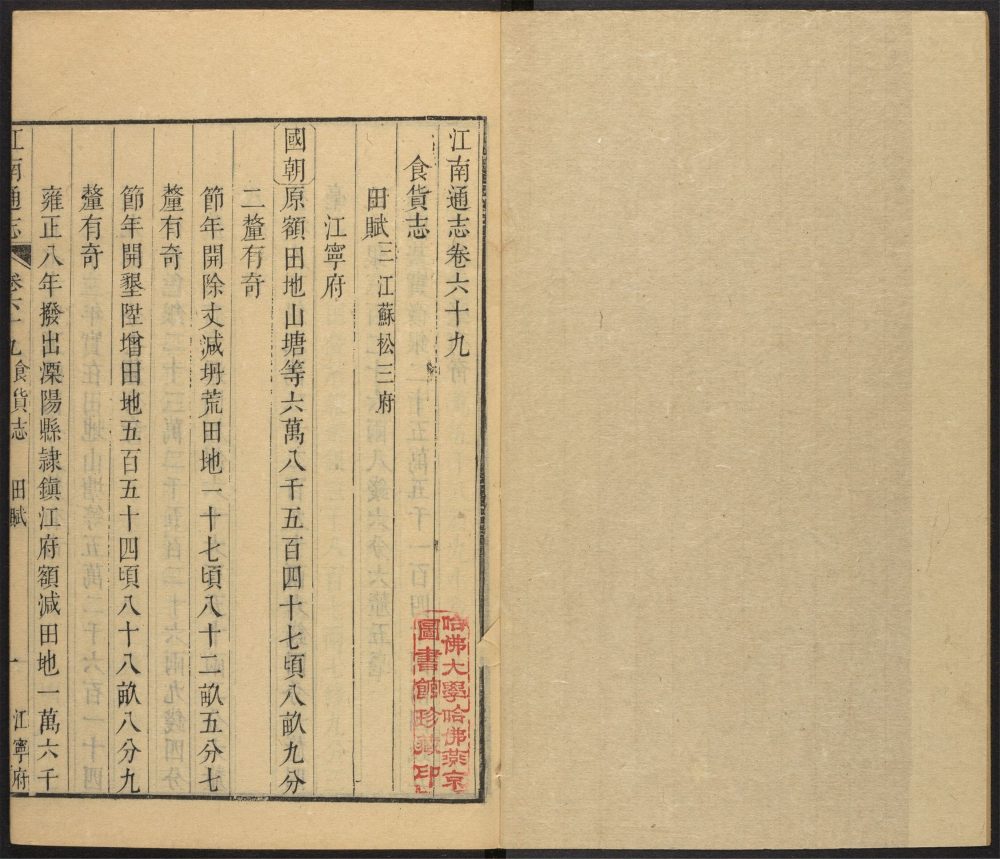 江南通志卷六十九
食貨志
田賦三 江蘇松三府
江寧府
國朝原額田地山塘等六萬八千五百四十七頃八畝九分
二釐有奇
節年開除丈減坍荒田地一十七頃八十二畝五分七
釐有奇
節年開墾陞增田地五百五十四頃八十八畝八分九
釐有奇
雍正八年撥出溧陽縣隷鎮江府額減田地一萬六千
江南通志 卷六十九 食貨志 田賦 一 江寧府
哈佛大學哈佛燕京
圖書館珍藏印